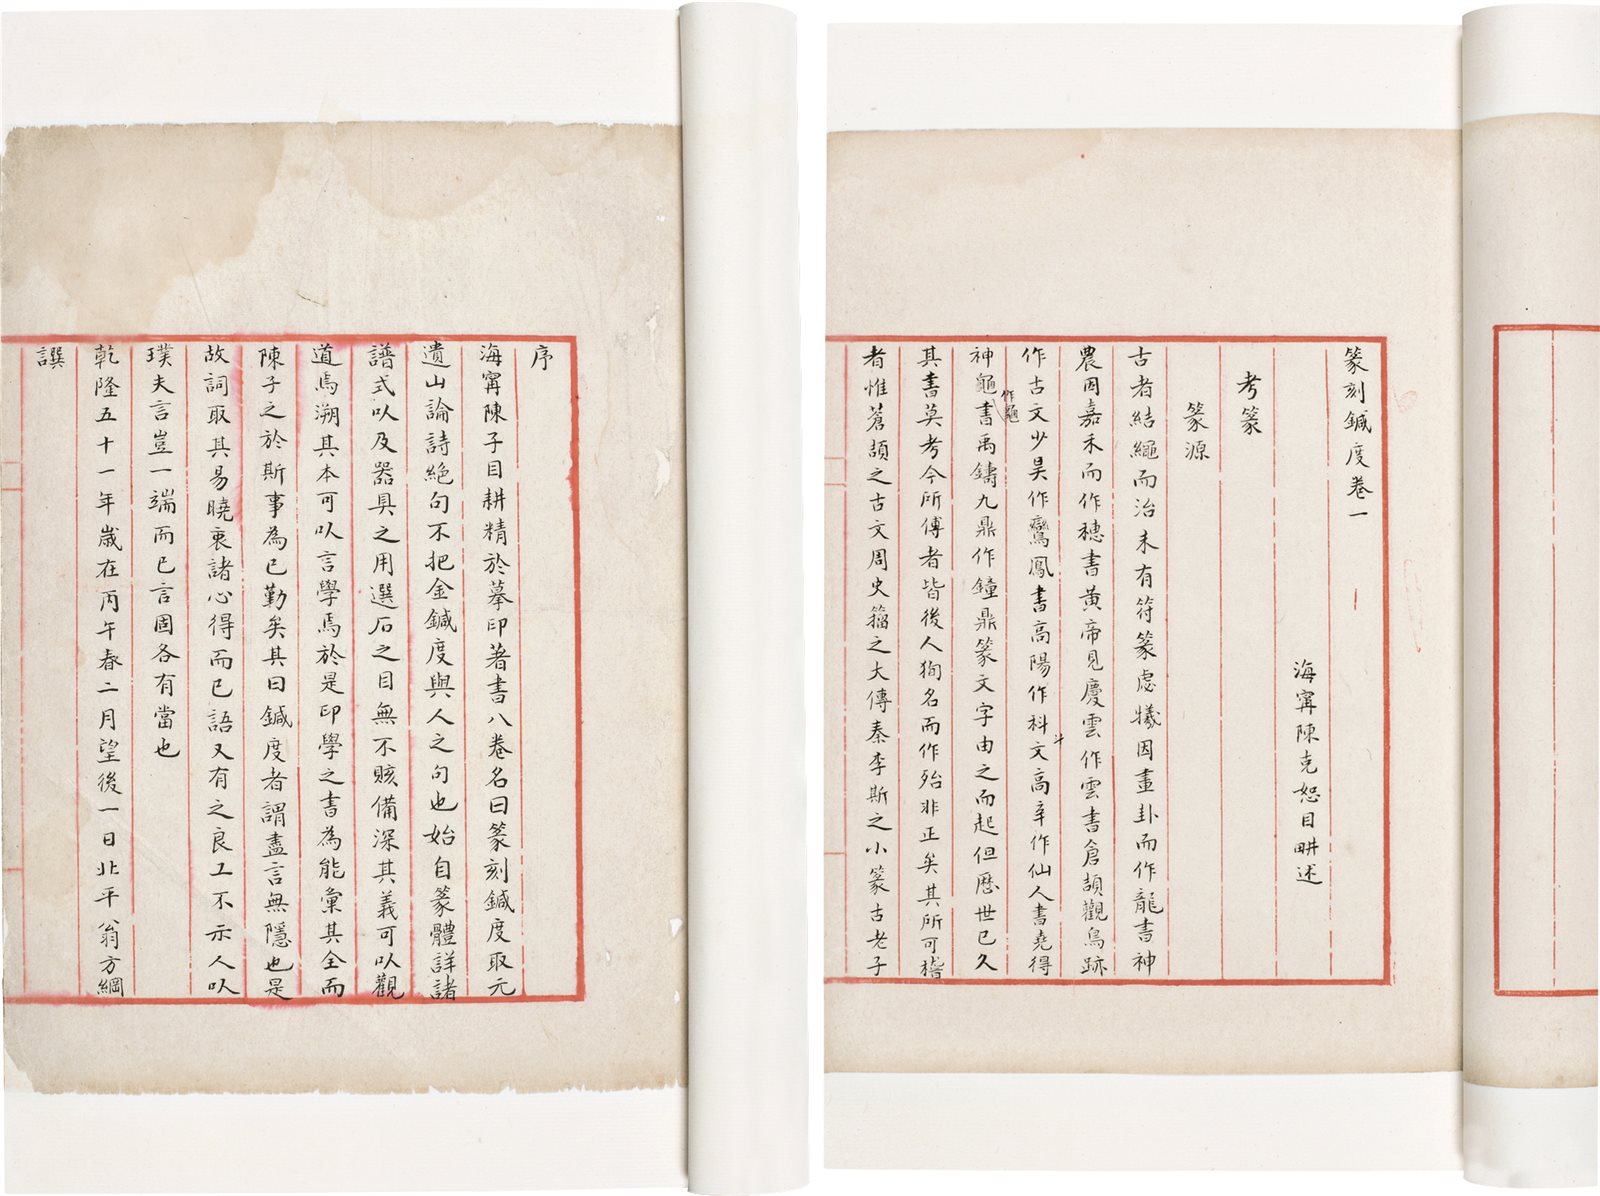 序
海寗陳子目耕精於摹印著書八卷名曰篆刻鍼度取元
遺山論詩絕句不把金鍼度與人之句也始自篆體詳諸
譜式以及器具之用選石之目無不賅備深其義可以觀
道焉溯其本可以言學焉於是印學之書為能彙其全而
陳子之於斯事為已勤矣其曰鍼度者謂盡言無隱也是
故詞取其易曉衷諸心得而已語又有之良工不示人以
璞夫言豈一端而已言固各有當也
乾隆五十一年歲在丙午春二月望後一日北平翁方綱
譔
篆刻鍼度卷一
海寗陳克恕目畊述
考篆
篆源
古者結繩而治未有符篆虙犧因畫卦而作龍書神
農因嘉禾而作穗書黃帝見慶雲作雲書倉頡觀鳥跡
作古文少昊作鸞鳳書高陽作科斗文高辛作仙人書堯得
神龜作龜書禹鑄九鼎作鐘鼎篆文字由之而起但歷世已久
其書莫考今所傳者皆後人狥名而作殆非正矣其所可稽
者惟蒼頡之古文周史籀之大傳秦李斯之小篆古老子